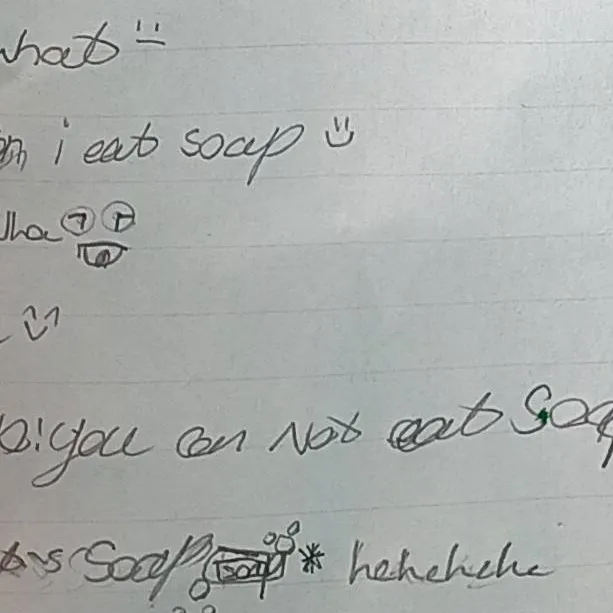 what
i eat soap
wha
you can Not eat Soap
Soap soap * hehehehe